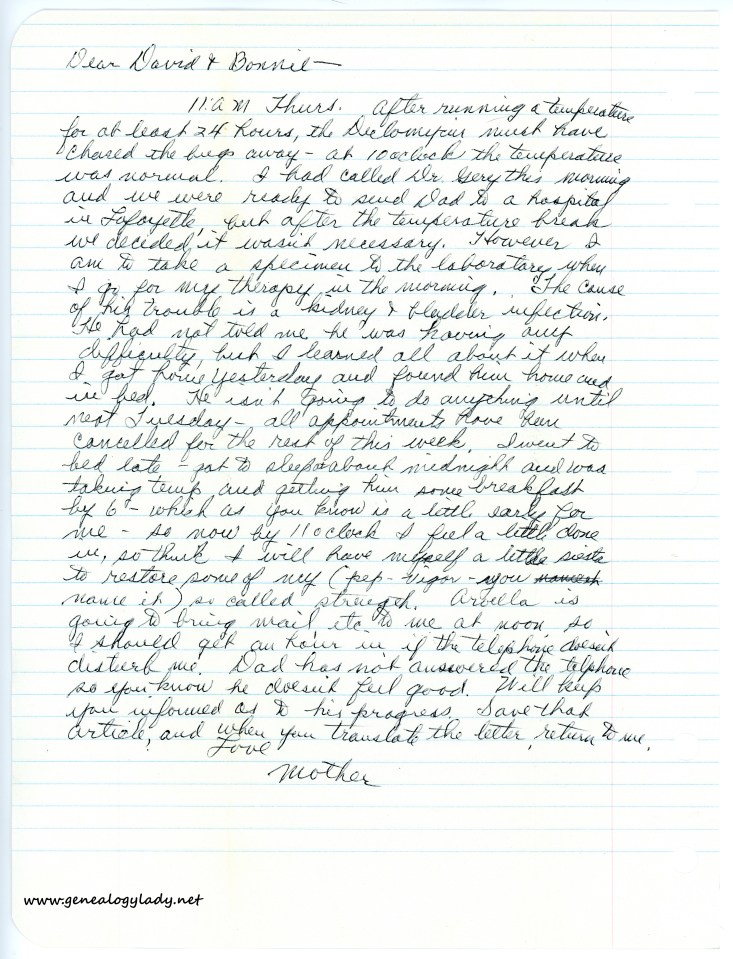 Dear David & Bonnie—
11 A M Thurs. After running a temperature
for at least 24 hours, the Declomycin must have
chased the bugs away – at 10 oclock the temperature
was normal. I had called Dr. Gery this morning
and we were ready to send Dad to a hospital
in Lafayette, but after the temperature break
we decided it wasn't necessary. However I
am to take a specimen to the laboratory when
I go for my therapy in the morning. The cause
of his trouble is a kidney & bladder infection.
He had not told me he was having any
difficulty, but I learned all about it when
I got home yesterday and found him home and
in bed. He isn't going to do anything until
next Tuesday – all appointments have been
cancelled for the rest of this week. I went to
bed late – got to sleep about midnight and was
taking temp and getting him some breakfast
by 6 – which as you know is a little early for
me – so now by 11 oclock I feel a little done
in, so think I will have myself a little siesta
to restore some of my (pep – vigor – you
name it) so called strength. Arvella is
going to bring mail etc to me at noon so
I should get an hour in if the telephone doesn't
disturb me. Dad has not answered the telphone
so you know he doesn't feel good. Will keep
you informed as to his progress. Save that
article, and when you translate the letter, return to me.
Love
Mother
www.genealogylady.net